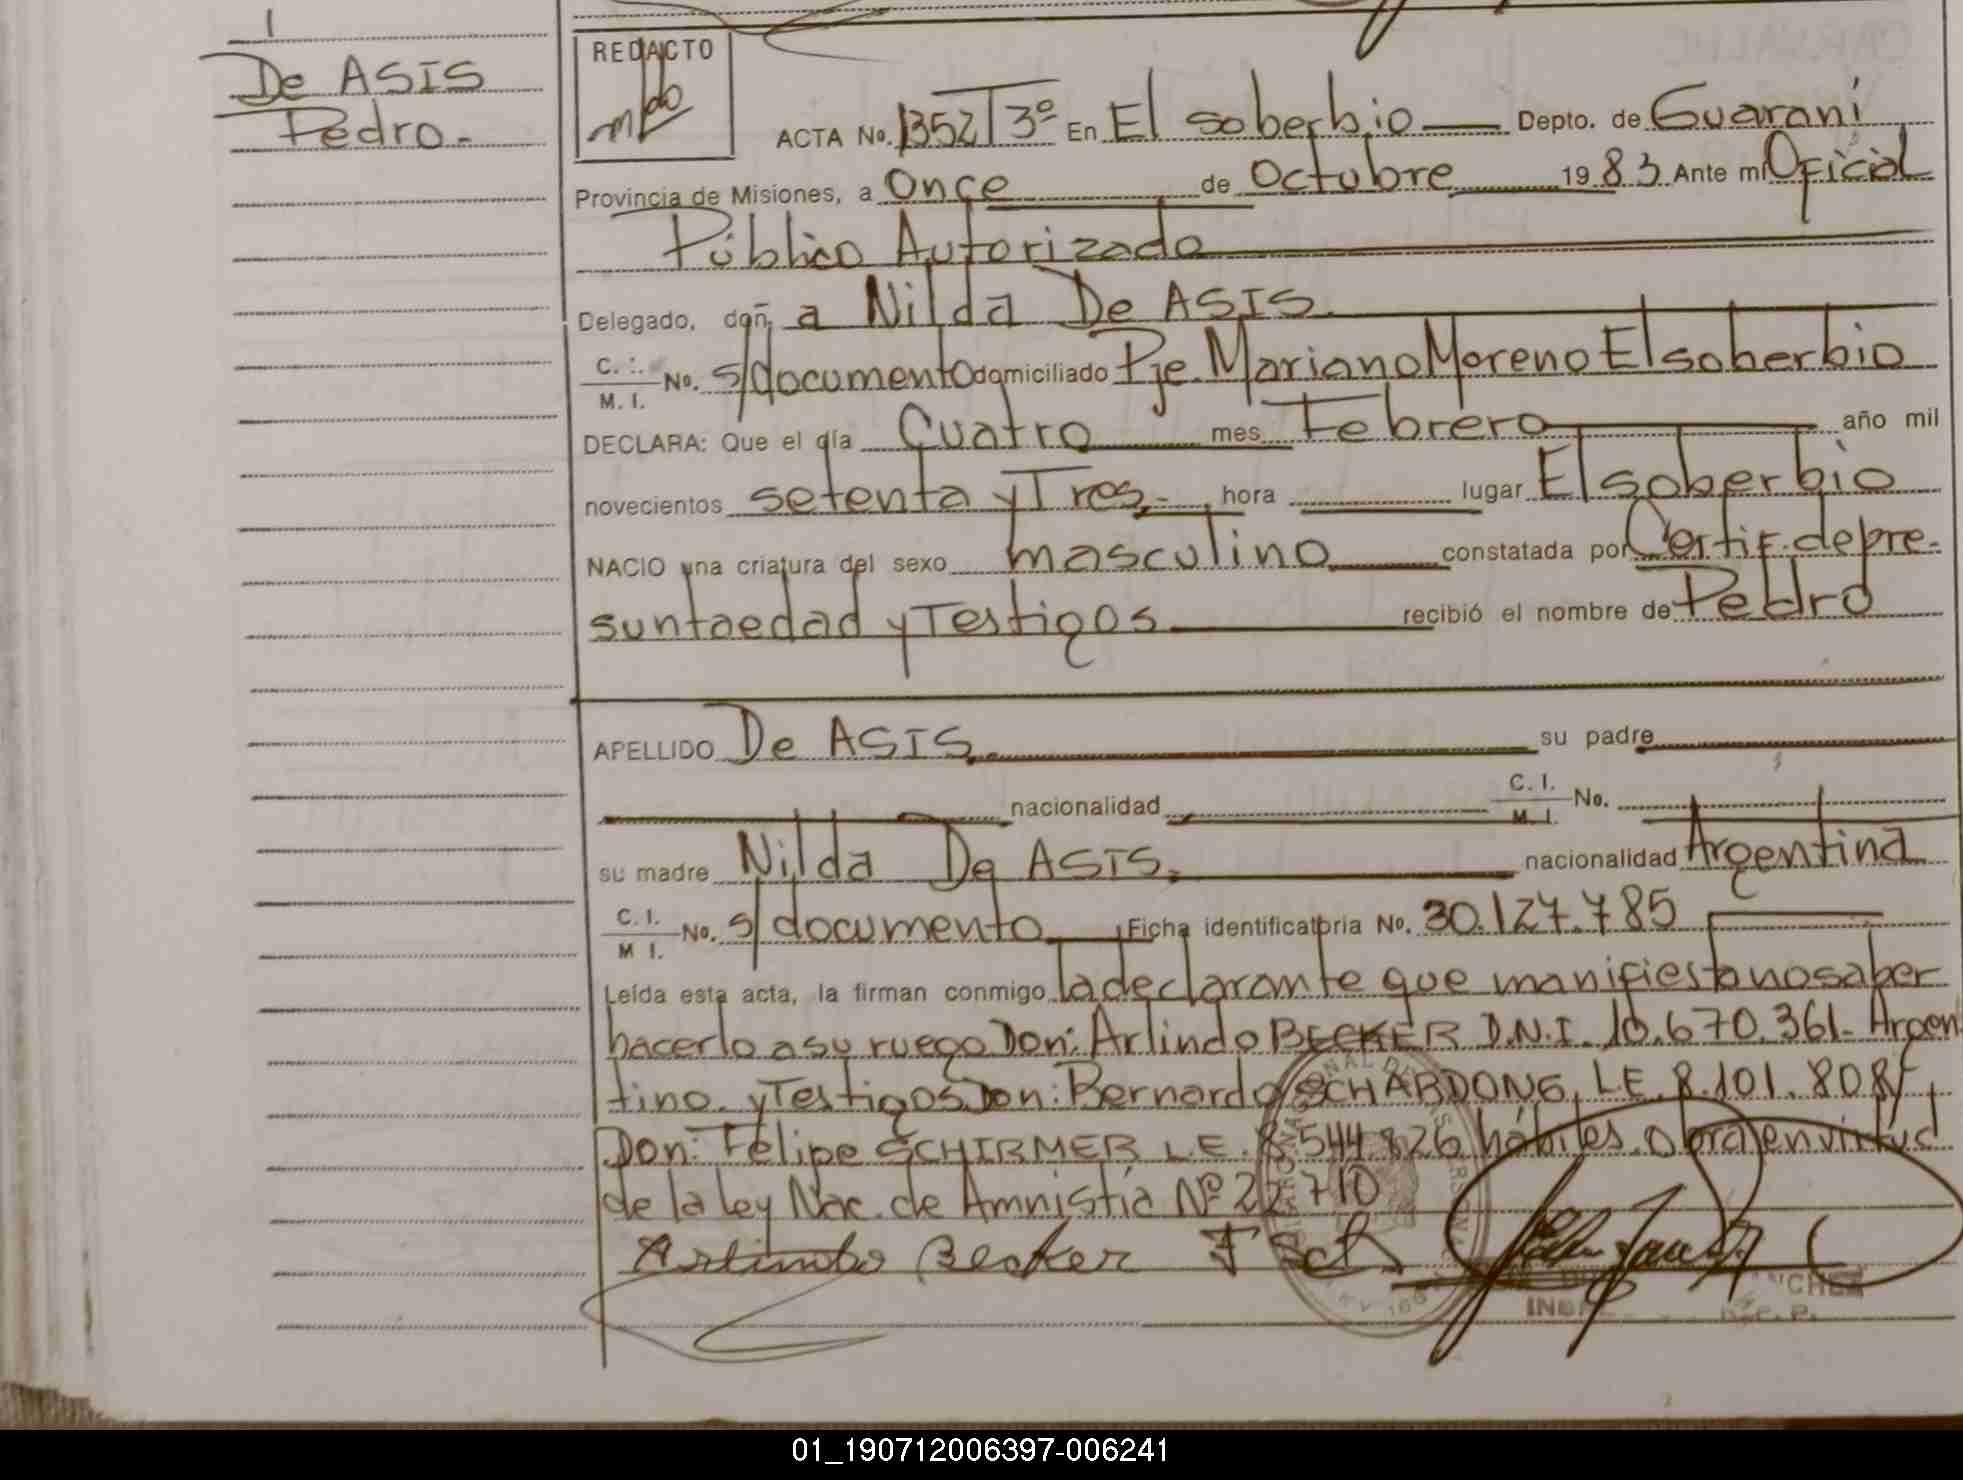 De ASIS
Pedro.-
REDACTO
ACTA No. 1352 T 3º En El soberbio Depto. de Guaraní
Provincia de Misiones, a once de Octubre 1983 Ante mí Oficial
Público Autorizado
Delegado, doñ a Nilda De ASIS.
C. I.
M. I. No. s/documento domiciliado Pje. Mariano Moreno El soberbio
DECLARA: Que el día Cuatro mes Febrero año mil
novecientos setenta y Tres.- hora lugar El soberbio
NACIO una criatura del sexo masculino constatada por Certif. de pre-
sunta edad y Testigos recibió el nombre de Pedro
APELLIDO De ASIS. su padre
nacionalidad C. I.
M. I. No.
su madre Nilda De ASIS. nacionalidad Argentina
C. I.
M I. No. s/documento Ficha identificatoria No. 30.127.785
Leída esta acta, la firman conmigo la declarante que manifiesta no saber
hacerlo a su ruego Don: Arlindo BECKER D.N.I. 10.670.361- Argen
tino. y Testigos Don: Bernardo SCHARDONG, LE. 8.101.808
Don: Felipe SCHIRMER L.E. 8.544.826 hábiles. Obra en virtud
de la ley Nac. de Amnistía Nº 22.710
Arlindo Becker F Sch
01_190712006397-006241